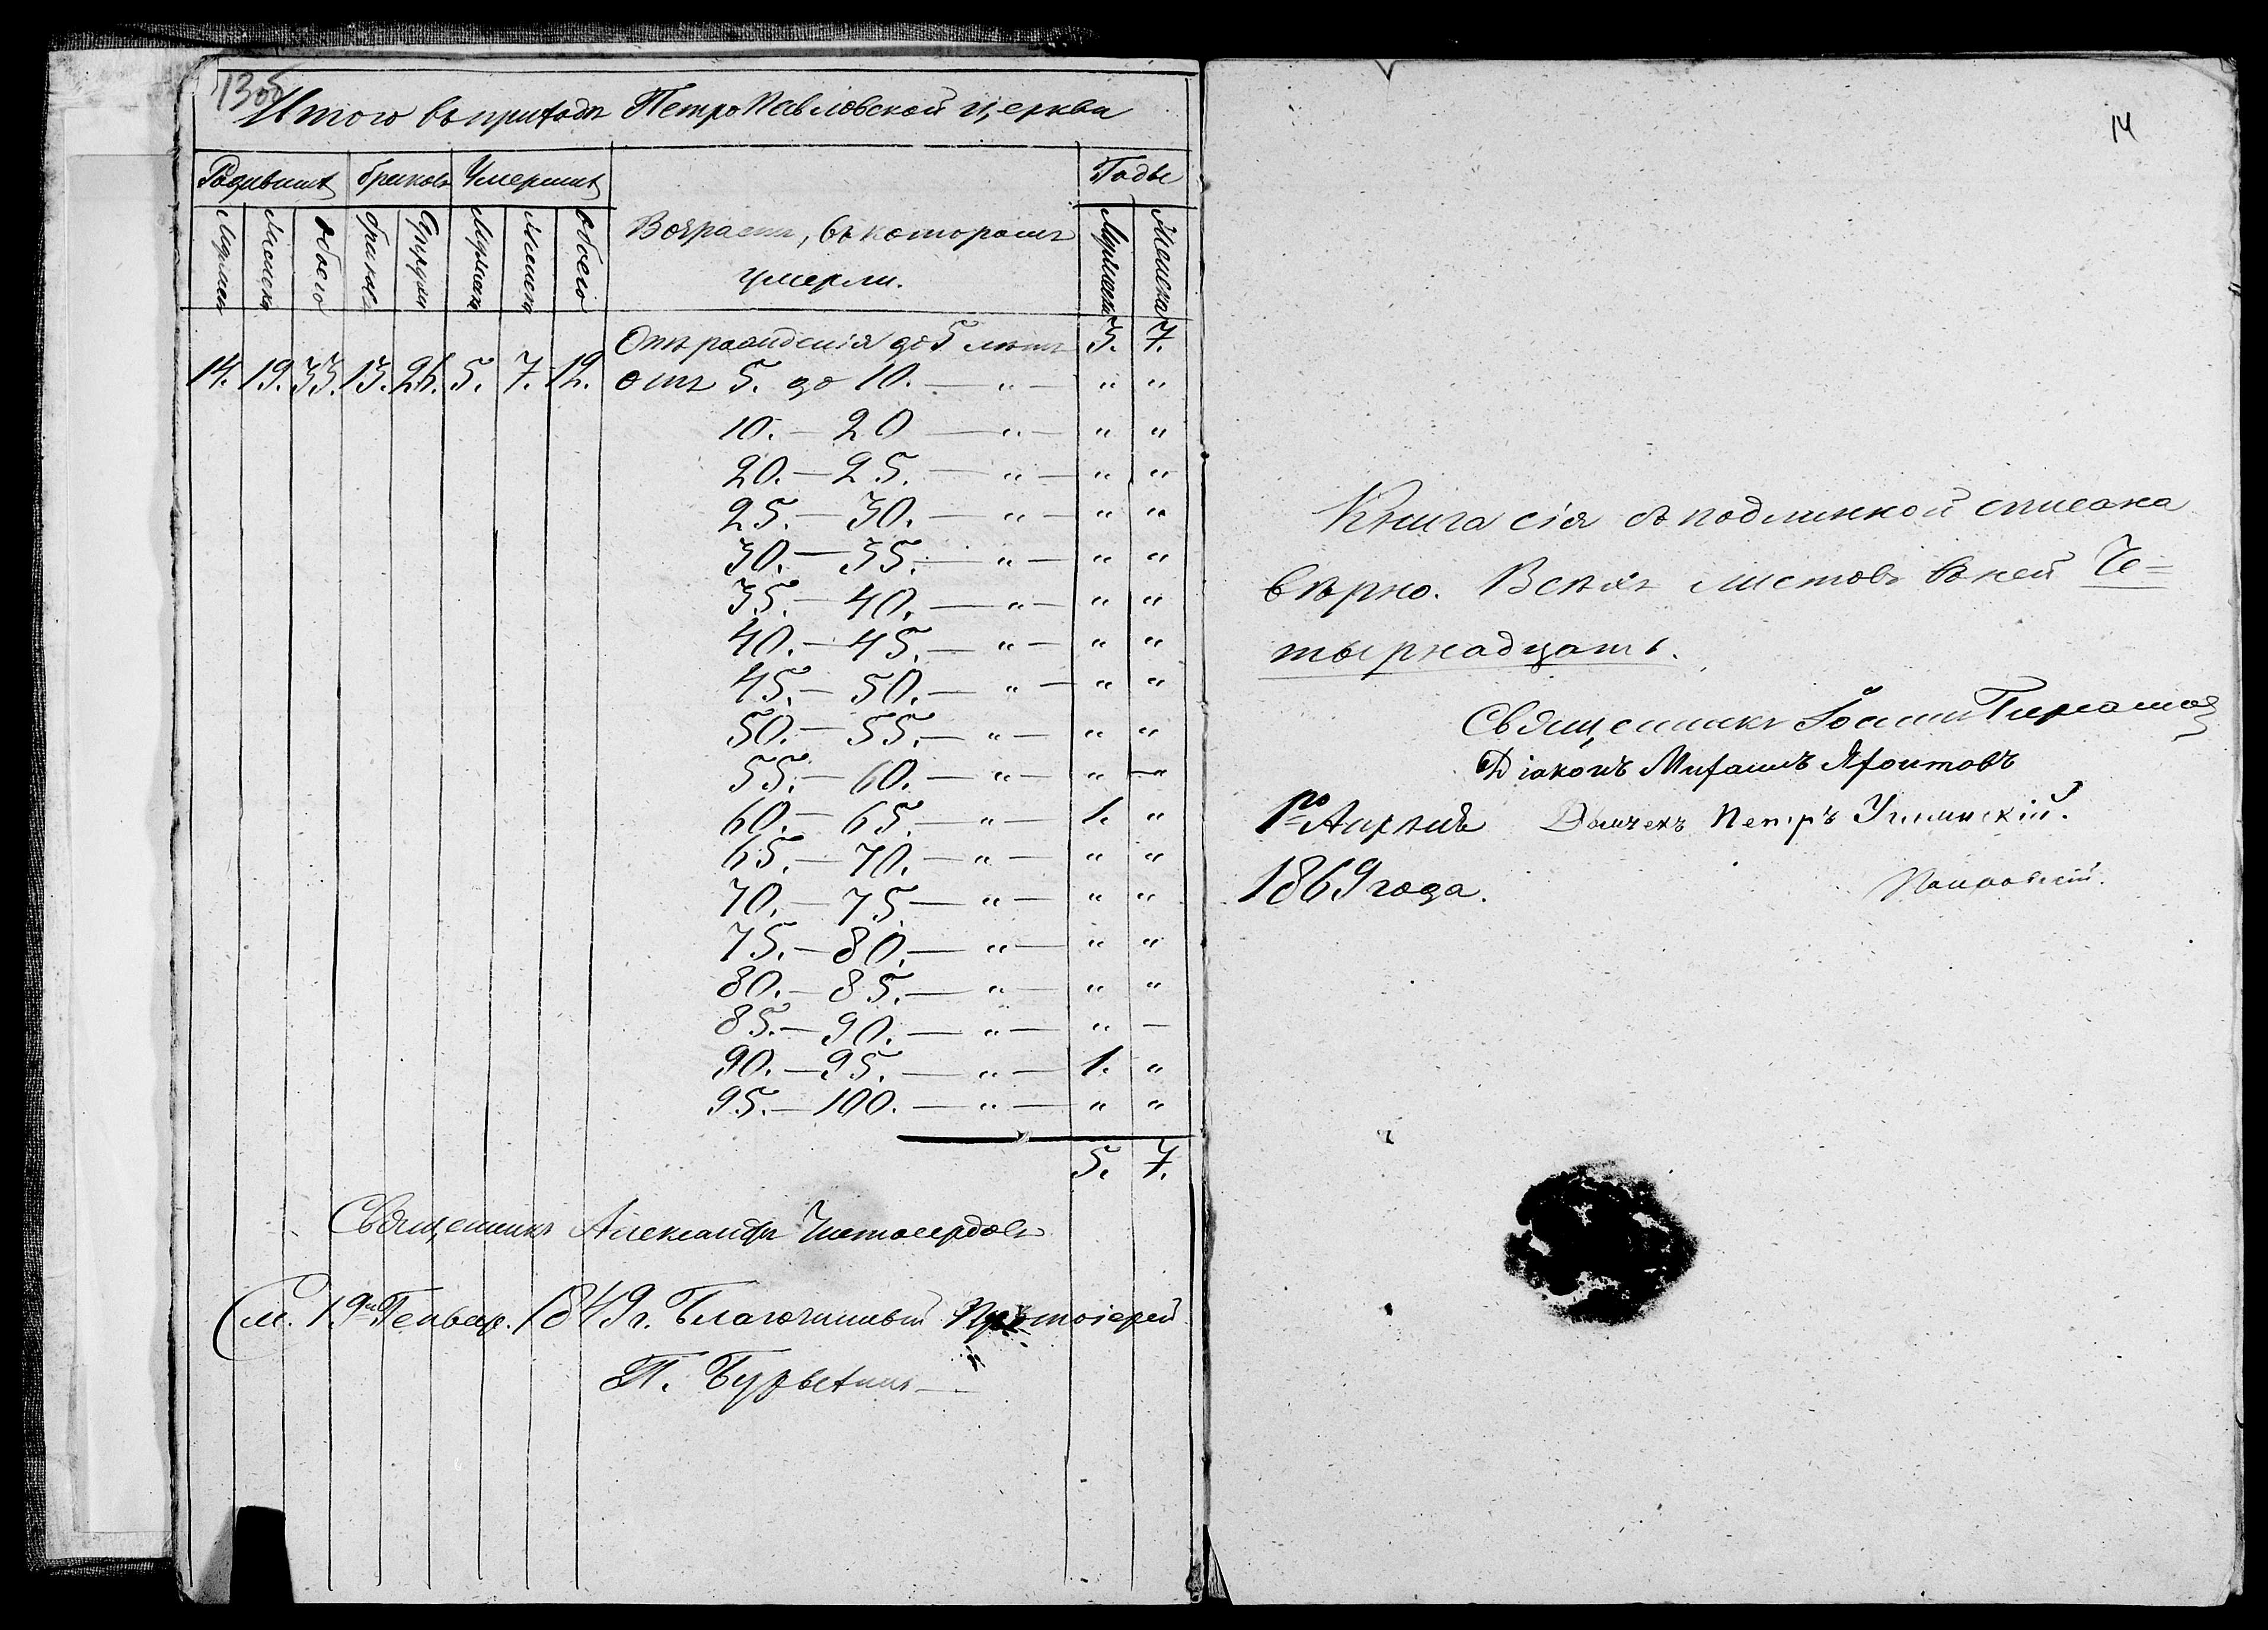 13об
Итого въ приходѣ ПетроПавловской церкви
Родившихъ браковъ Умершихъ Годы
Мужеск Женска Обоего браковъ Супруги Мужеск Женск обоего Возрастъ, въ которомъ Мужеска Женска
умерли.
Отъ рожденія до 5 лѣтъ 3. 7.
14. 19. 33. 13. 26. 5. 7. 12. отъ 5. до 10. — „ — „ „
10. — 20 — „ — „ „
20. — 25. — „ — „ „
25. — 30. — „ — „ „
30. — 35. — „ — „ „
35. — 40. — „ — „ „
40. — 45. — „ — „ „
45. — 50. — „ — „ „
50. — 55. — „ — „ „
55. — 60. — „ — „ „
60. — 65. — „ — 1. „
65. — 70. — „ — „ „
70. — 75. — „ — „ „
75. — 80. — „ — „ „
80. — 85. — „ — „ „
85. — 90. — „ — „ —
90. — 95. — „ — 1. „
95. — 100. — „ — „ „
5. 7.
Священникъ Александръ Чистосердовъ
См. 19 Генвар. 1849 г. Благочинный Протоіерей
П.
14
Книга сія съ подлинной списана
вѣрно. Всѣхъ листовъ въ ней Че=
тырнадцать.
Священникъ Іоаннъ
Діаконъ Михаилъ
1го Апрѣля Дьячекъ Петръ
1869 года.